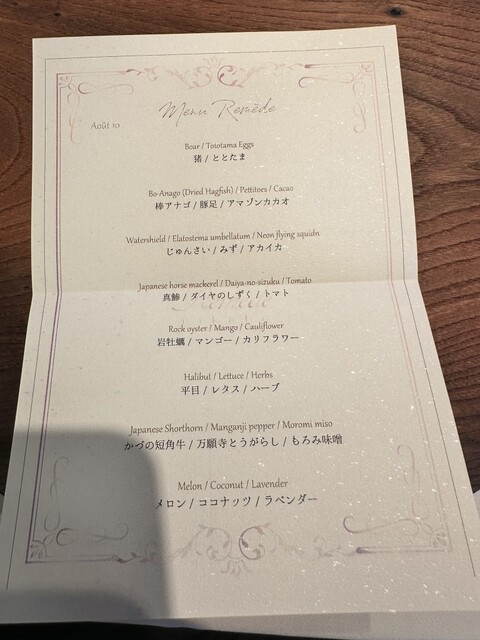 Menu Remède
Août 10
Boar / Tototama Eggs
猪 / ととたま
Bo-Anago (Dried Hagfish) / Pettitoes / Cacao
棒アナゴ / 豚足 / アマゾンカカオ
Watershield / Elatostema umbellatum / Neon flying squidn
じゅんさい / みず / アカイカ
Japanese horse mackerel / Daiya-no-sizuku / Tomato
真鯵 / ダイヤのしずく / トマト
Rock oyster / Mango / Cauliflower
岩牡蠣 / マンゴー / カリフラワー
Halibut / Lettuce / Herbs
平目 / レタス / ハーブ
Japanese Shorthorn / Manganji pepper / Moromi miso
かづの短角牛 / 万願寺とうがらし / もろみ味噌
Melon / Coconut / Lavender
メロン / ココナッツ / ラベンダー